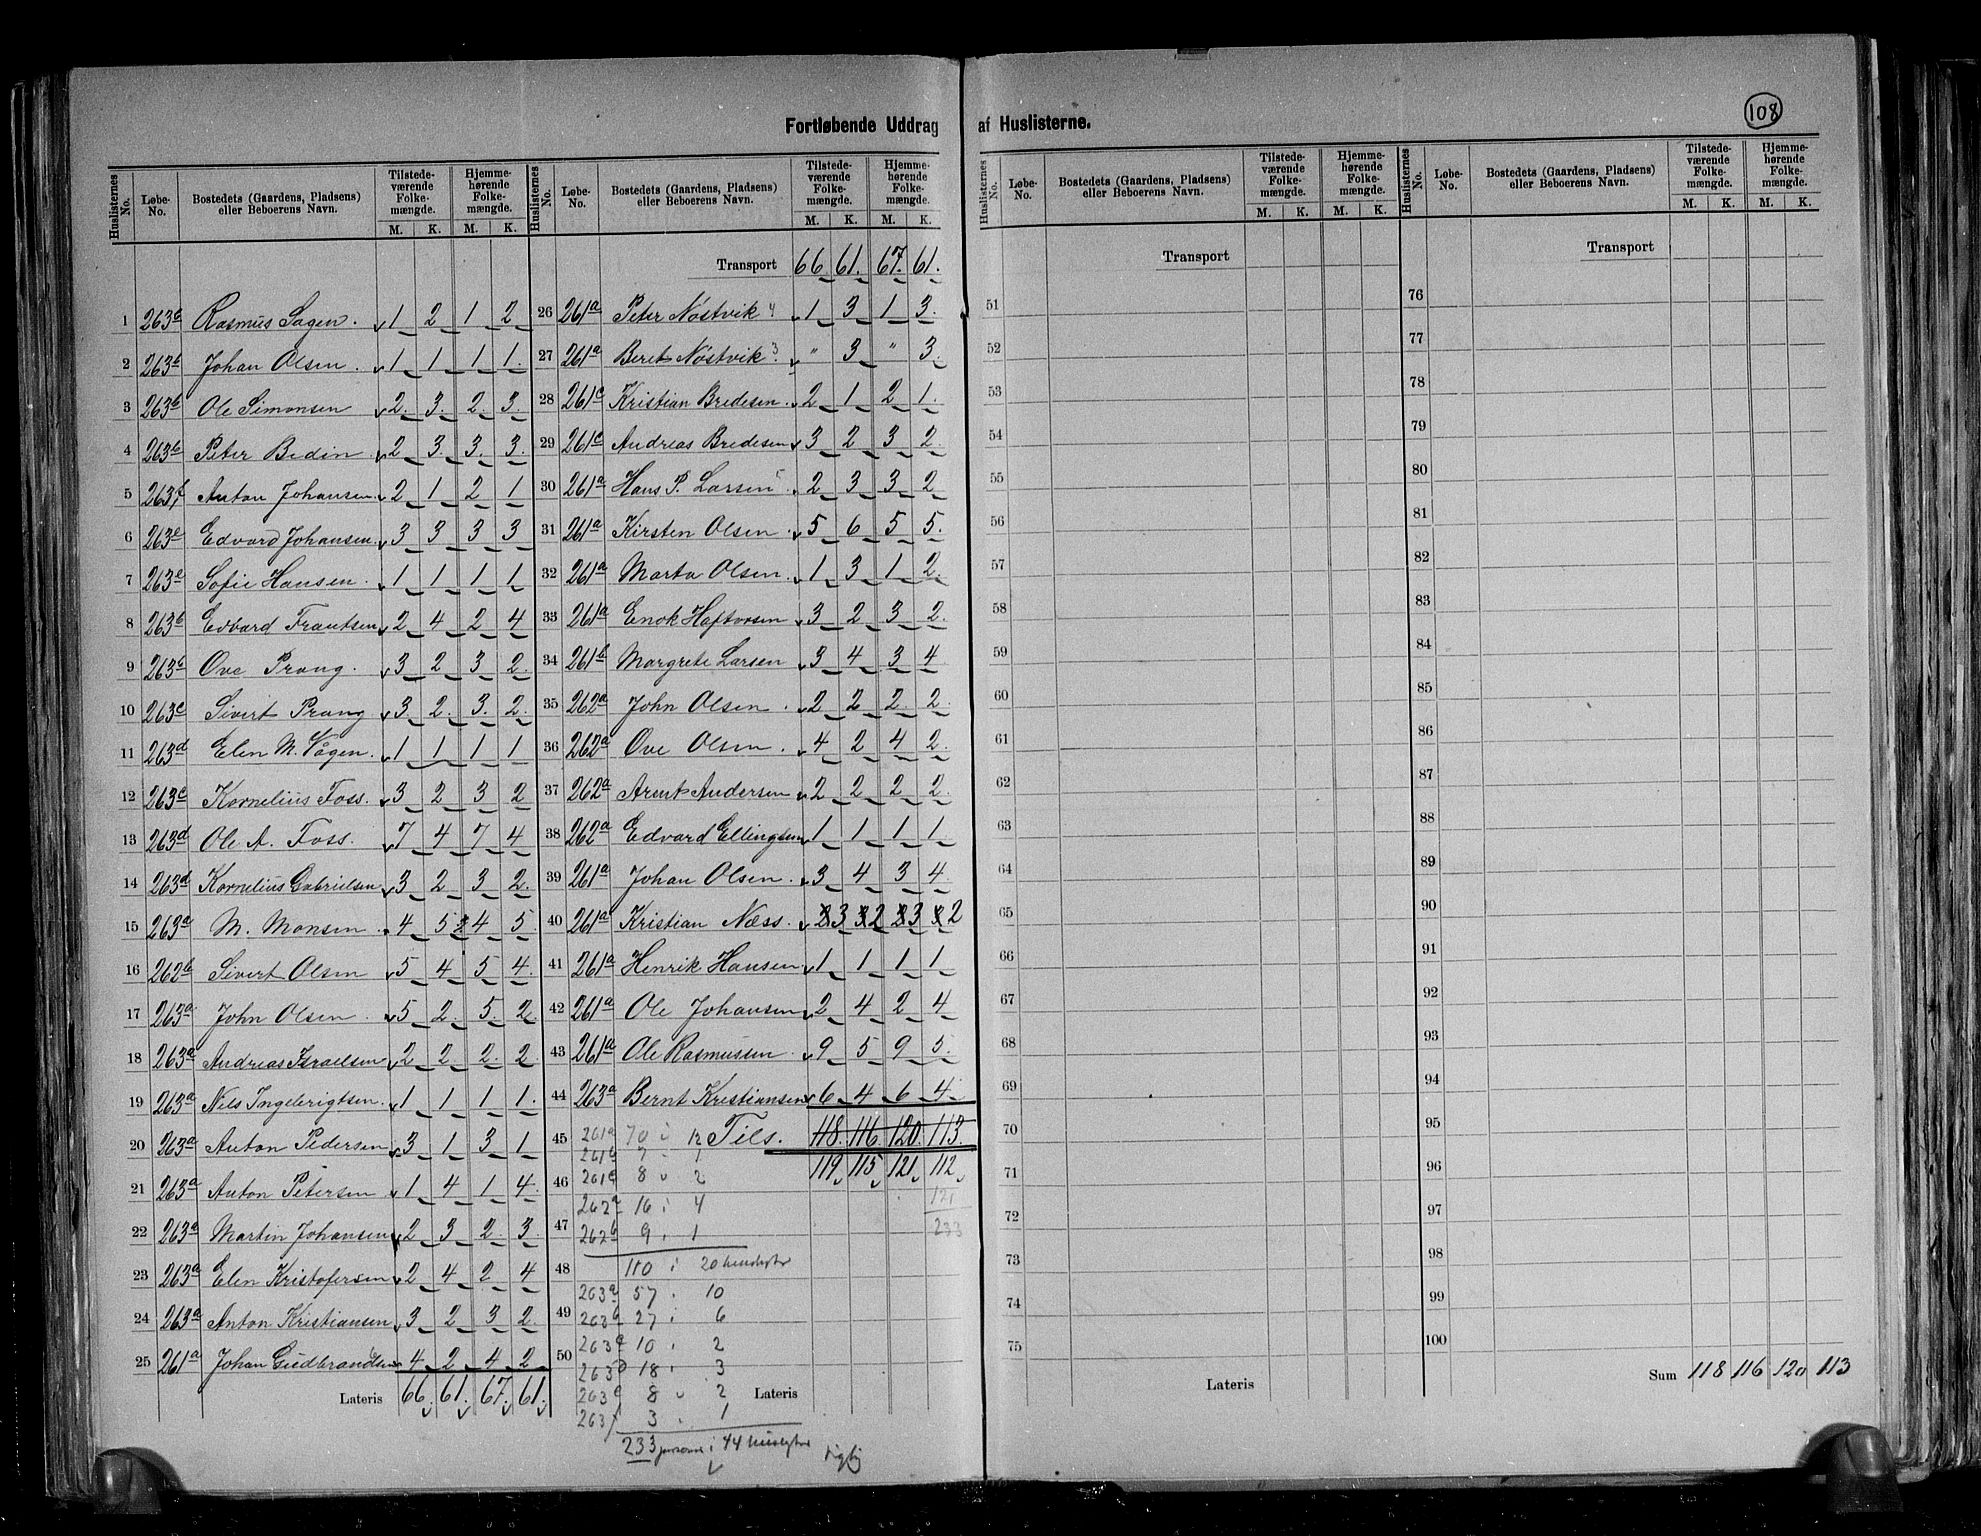 108
Fortløbende Uddrag af Huslisterne.
Huslisternes No. Løbe-No. Bostedets (Gaardens, Pladsens) eller Beboerens Navn. Tilstedeværende Folkemængde. Hjemmehørende Folkemængde. M. K. M. K.
1 263b Rasmus Sagen. 1 2 1 2
2 263b Johan Olsen. 1 1 1 1.
3 263b Ole Simonsen 2. 3. 2. 3.
4 263b Peter Bedin 2 3. 3. 3.
5 263f Anton Johansen. 2 1 2 1
6 263e Edvard Johansen. 3 3 3 3
7 263e Sofie Hansen. 1 1 1 1
8 263b Edvard Frantsen 2 4 2 4
9 263b Ove Prang. 3 2 3 2.
10 263c Sivert Prang 3. 2. 3. 2.
11 263d Elen M. Vågen. 1 1 1 1
12 263c Kornelius Foss. 3 2 3 2
13 263d Ole A. Foss. 7 4 7 4
14 263d Kornelius Gabrielsen 3 2 3 2.
15 263a M. Monsen. 4 5 4 5
16 262b Sivert Olsen 5 4 5 4.
17 263a John Olsen. 5 2. 5. 2.
18 263a Andreas Israelsen 2 2. 2. 2.
19 263a Nils Ingebrigtsen. 1 1 1 1.
20 263a Anton Pedersen 3 1 3 1
21 263a Anton Petersen 1 4 1 4.
22 263a Martin Johansen 2 3 2 3.
23 263a Elen Kristofersen 2 4 2 4
24 263a Anton Kristiansen 3 2 3 2.
25 261a Johan Gudbrandsen 4 2 4 2
Lateris 66. 61. 67. 61.
Huslisternes No. Løbe-No. Bostedets (Gaardens, Pladsens) eller Beboerens Navn. Tilstedeværende Folkemængde. Hjemmehørende Folkemængde. M. K. M. K.
Transport 66 61. 67. 61.
26 261a Peter Nöstvik 4 1 3 1 3.
27 261a Beret Nöstvik 3. " 3 " 3.
28 261c Kristian Bredesen. 2 1 2 1.
29 261c Andreas Bredesen 3 2 3 2.
30 261a Hans P. Larsen 2 3 3 2
31 261a Kirsten Olsen. 5 6 5 5.
32 261a Marta Olsen. 1 3 1 2.
33 261a Enok Haftorsen 3 2 3 2.
34 261b Margrete Larsen 3 4 3 4
35 262a John Olsen. 2 2 2. 2.
36 262a Ove Olsen. 4 2 4 2.
37 262a Arent Andersen 2 2 2 2.
38 262a Edvard Ellingsen 1 1 1 1
39 261a Johan Olsen. 3 4 3 4
40 261a Kristian Næss. 3 2 3 2
41 261a Henrik Hansen 1 1 1 1
42 261a Ole Johansen 2 4 2 4
43 261a Ole Rasmussen. 9 5 9 5.
44 263a Bernt Kristiansen 6 4 6 4
45 261a 70 i 12 Tils. 118. 116. 120. 113.
261b 7 " 1 119 115 121 112
46 261c 8 " 2
262a 16 i 4 121
47 262b 9 i 1 233
48 110 i 20 huslister
263a 57 i 10
49 263b 27 i 6
263c 10 i 2
50 263d 18 i 3
263e 8 " 2 Lateris
263f 3 " 1
233 personer i 44 huslister rigtig
Huslisternes No. Løbe-No. Bostedets (Gaardens, Pladsens) eller Beboerens Navn. Tilstedeværende Folkemængde. Hjemmehørende Folkemængde. M. K. M. K.
Transport
51
52
53
54
55
56
57
58
59
60
61
62
63
64
65
66
67
68
69
70
71
72
73
74
75
Lateris
Huslisternes No. Løbe-No. Bostedets (Gaardens, Pladsens) eller Beboerens Navn. Tilstedeværende Folkemængde. Hjemmehørende Folkemængde. M. K. M. K.
Transport
76
77
78
79
80
81
82
83
84
85
86
87
88
89
90
91
92
93
94
95
96
97
98
99
100
Sum 118 116 120 113